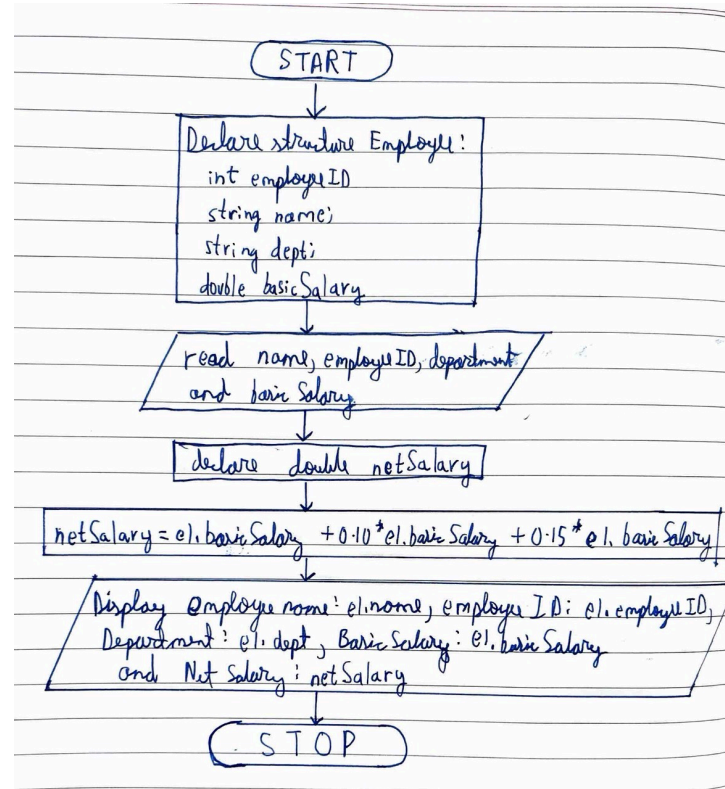 START
Declare structure Employee:
int employeeID
string name;
string dept;
double basicSalary
read name, employeeID, department
and basic Salary
declare double netSalary
netSalary = e1.basicSalary + 0.10 * e1.basicSalary + 0.15 * e1.basicSalary
Display employee name: e1.name, employee ID: e1.employeeID,
Department: e1.dept, Basic Salary: e1.basicSalary
and Net Salary: netSalary
STOP